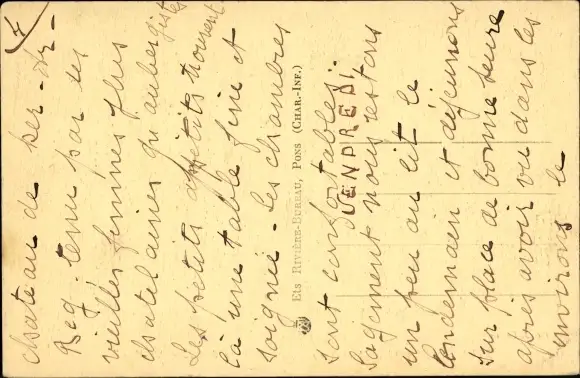 4
chateau de Ker-Ar-
Beg tenu par des
vieilles femmes plus
chatelaines qu'aubergistes
Les petits appétits trouvent
là une table fine et
soignée - les chambres
Ets Rivière-Bureau, Pons (Char.-Inf.)
sont confortables..
VENDREDI
Sagement nous restons
un peu au lit le
lendemain et déjeunons
sur place de bonne heure
après avoir vu dans les
environs le